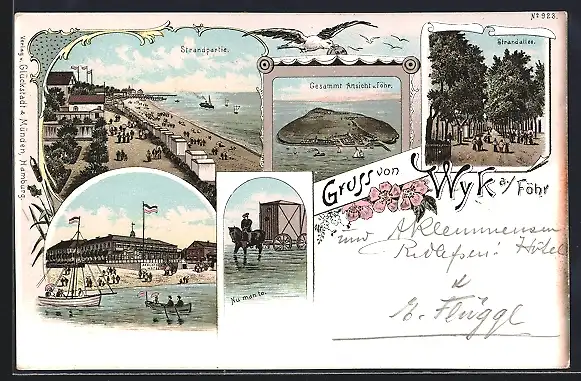 No 923.
Verlag v. Glückstadt & Münden, Hamburg.
Strandpartie.
Gesammt Ansicht v. Föhr.
Strandallee.
Gruss von Wyk a/ Föhr
Nu man to.
und
Hôtel
&